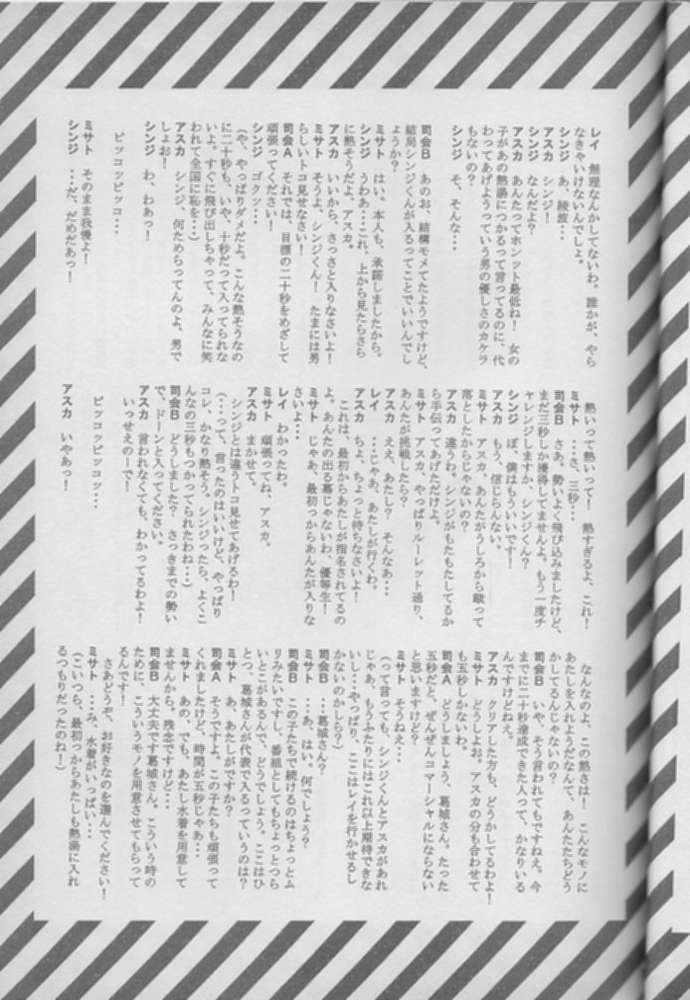 レイ　無理なんかしてないわ。誰かが、やら
なきゃいけないんでしょ。
シンジ　あ、綾波…
アスカ　シンジ！
シンジ　なんだよ？
アスカ　あんたってホンット最低ね！　女の
子があの熱湯につかるって言ってるのに、代
わってあげようっていう男の優しさのカケラ
もないの？
シンジ　そ、そんな…
司会B　あのお、結構モメてたようですけど、
結局シンジくんが入るってことでいいんでし
ょうか？
ミサト　はい。本人も、承諾しましたから。
シンジ　うわあ…これ、上から見たらさら
に熱そうだよ。アスカ。
アスカ　いいから、さっさと入りなさいよ！
ミサト　そうよ、シンジくん！　たまには男
らしいトコ見せなさい！
司会A　それでは、目標の二十秒をめざして
頑張ってください！
シンジ　ゴクッ…
（や、やっぱりダメだよ。こんな熱そうなの
に二十秒も、いや、十秒だって入ってられな
いよ。すぐに飛び出しちゃって、みんなに笑
われて全国に恥を…）
アスカ　シンジ、何ためらってんのよ、男で
しょお！
シンジ　わ、わあっ！
ピッコッピッコ…
ミサト　そのまま我慢よ！
シンジ　…だ、だめだあっ！
熱いって熱いって！　熱すぎるよ、これ！
ミサト　…さ、三秒…
司会B　さあ、勢いよく飛び込みましたけど、
まだ三秒しか獲得してませんよ。もう一度チ
ャレンジしますか、シンジくん？
シンジ　ぼ、僕はもういいです！
アスカ　もう、信じらんない。
ミサト　アスカ、あんたがうしろから蹴って
落としたからじゃないの？
アスカ　違うわ。シンジがもたもたしてるか
ら手伝ってあげただけよ。
ミサト　アスカ、やっぱりルーレット通り、
あんたが挑戦したら？
アスカ　ええ、あたし？　そんなあ…
レイ　…じゃあ、あたしが行くわ。
アスカ　ちょ、ちょっと待ちなさいよ！
これは、最初からあたしが指名されてるの
よ。あんたの出る幕じゃないわ、優等生！
ミサト　じゃあ、最初っからあんたが入りな
さいよ…
レイ　わかったわ。
ミサト　頑張ってね、アスカ。
アスカ　まかせて。
シンジとは違うトコ見せてあげるわ！
（…って、言ったのはいいけど、やっぱり
コレ、かなり熱そう。シンジったら、よくこ
んなの三秒もつかってられたわね…）
司会B　どうしました？　さっきまでの勢い
で、ドーンと入ってください。
アスカ　言われなくても、わかってるわよ！
いっせえのーで！
ピッコッピッコッ…
アスカ　いやあっ！
なんなのよ、この熱さは！　こんなモノに
あたしを入れようだなんて、あんたたちどう
かしてるんじゃないの？
司会B　いや、そう言われてもですねえ。今
までに二十秒達成できた人って、かなりいる
んですけどねえ。
アスカ　クリアした方も、どうかしてるわよ！
ミサト　どうしよお。アスカの分も合わせて
も五秒しかないわ。
司会A　どうしましょう、葛城さん。たった
五秒だと、ぜんぜんコマーシャルにならない
と思いますけど？
ミサト　そうねえ…
（って言っても、シンジくんとアスカがあれ
じゃあ、もうふたりにはこれ以上期待できな
いし…やっぱり、ここはレイを行かせるし
かないのかしら？）
司会B　…葛城さん？
ミサト　…あ、はい。何でしょう？
司会B　この子たちで続けるのはちょっとム
リみたいですし、番組としてもちょっとつら
いとこがあるんで、どうでしょう。ここはひ
とつ、葛城さんが代表で入るっていうのは？
ミサト　あ、あたしがですか？
司会A　そうですよ。この子たちも頑張って
くれましたけど、時間が五秒じゃあ…
ミサト　あの、でも、あたし水着を用意して
ませんから。残念ですけど…
司会B　大丈夫です葛城さん。こういう時の
ために、こういうモノを用意させてもらって
るんです！
さあどうぞ、お好きなのを選んでください！
ミサト　…み、水着がいっぱい…
（こいつら、最初っからあたしも熱湯に入れ
るつもりだったのね！）